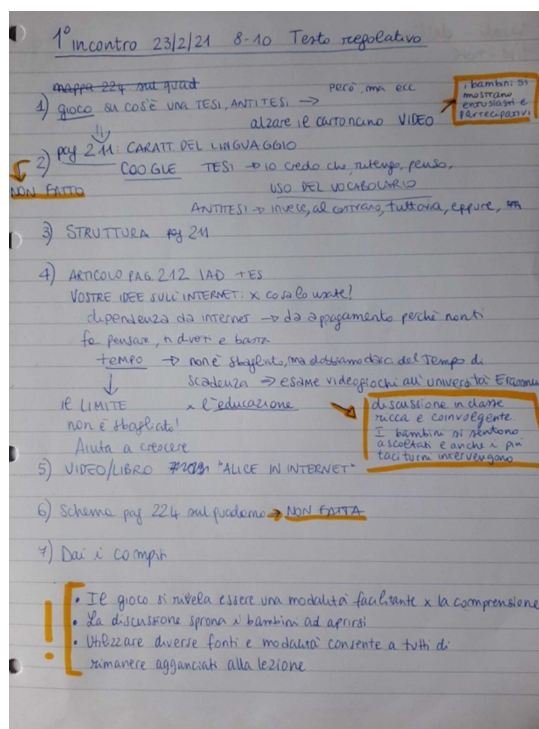 1° incontro 23/2/21 8-10 Testo regolativo
mappa 224 sul quad
1) gioco su cos'è una TESI, ANTITESI → però, ma ecc
alzare il cartoncino VIDEO
i bambini si
mostrano
entusiasti e
partecipativi
2) pag 211: CARATT. DEL LINGUAGGIO
NON FATTO
GOOGLE TESI → io credo che, ritengo, penso,
USO DEL VOCABOLARIO
ANTITESI → invece, al contrario, tuttavia, eppure,
3) STRUTTURA pag 211
4) ARTICOLO PAG. 212 IAD + ES
VOSTRE IDEE SULL'INTERNET: x cosa lo usate?
dipendenza da internet → dà appagamento perché non ti
fa pensare, ti diverti e basta
TEMPO → non è sbagliato, ma dobbiamo darci del Tempo di
scadenza → esame videogiochi all'università Erasmus
IL LIMITE x l'educazione
non è sbagliato!
Aiuta a crescere
discussione in classe
ricca e coinvolgente
I bambini si sentono
ascoltati e anche i più
taciturni intervengono
5) VIDEO/LIBRO "ALICE IN INTERNET"
6) Schema pag 224 sul quaderno → NON FATTA
7) Dai i compiti
! • Il gioco si rivela essere una modalità facilitante x la comprensione
• La discussione sprona i bambini ad aprirsi
• Utilizzare diverse fonti e modalità consente a tutti di
rimanere agganciati alla lezione